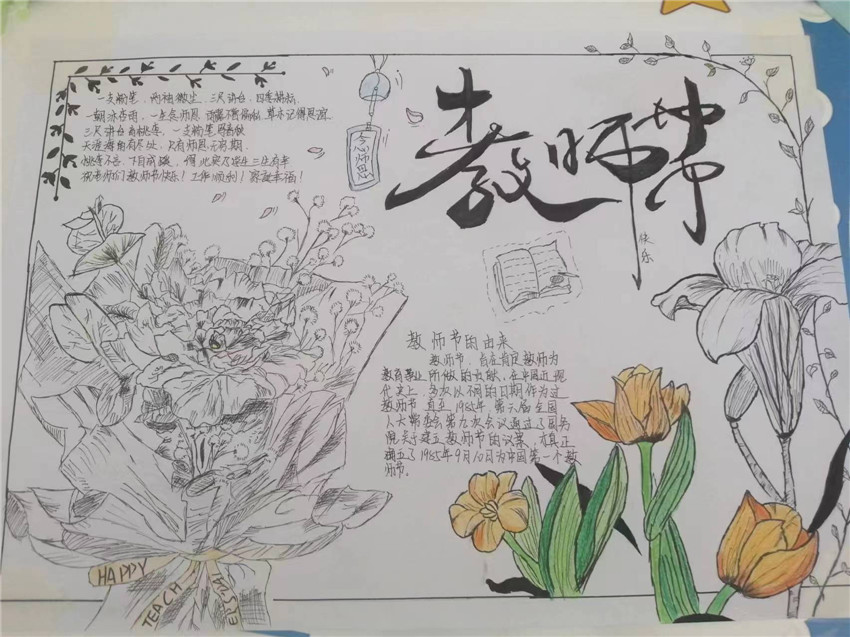 一支粉笔，两袖微尘，三尺讲台，四季耕耘
三尺讲台育桃李，一支粉笔
天涯海角有尽处，只有师恩无穷期。
桃李不言，下自成蹊，
祝老师们教师节快乐！工作顺利！家庭幸福！
念师恩
教师节
快乐
教师节的由来
教师节，旨在肯定教师为
教育事业所做的贡献，在中国近现
代史上，多次以不同的日期作为过
教师节，直至1985年，第六届全国
人大常委会第九次会议通过了国务
院关于建立教师节的议案，才真正
确立了1985年9月10日为中国第一个教
师节。
HAPPY
TEACH